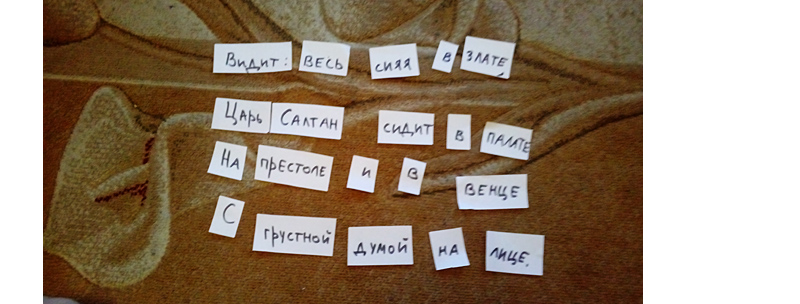 Видит: весь сияя в злате,
Царь Салтан сидит в палате
На престоле и в венце
С грустной думой на лице.